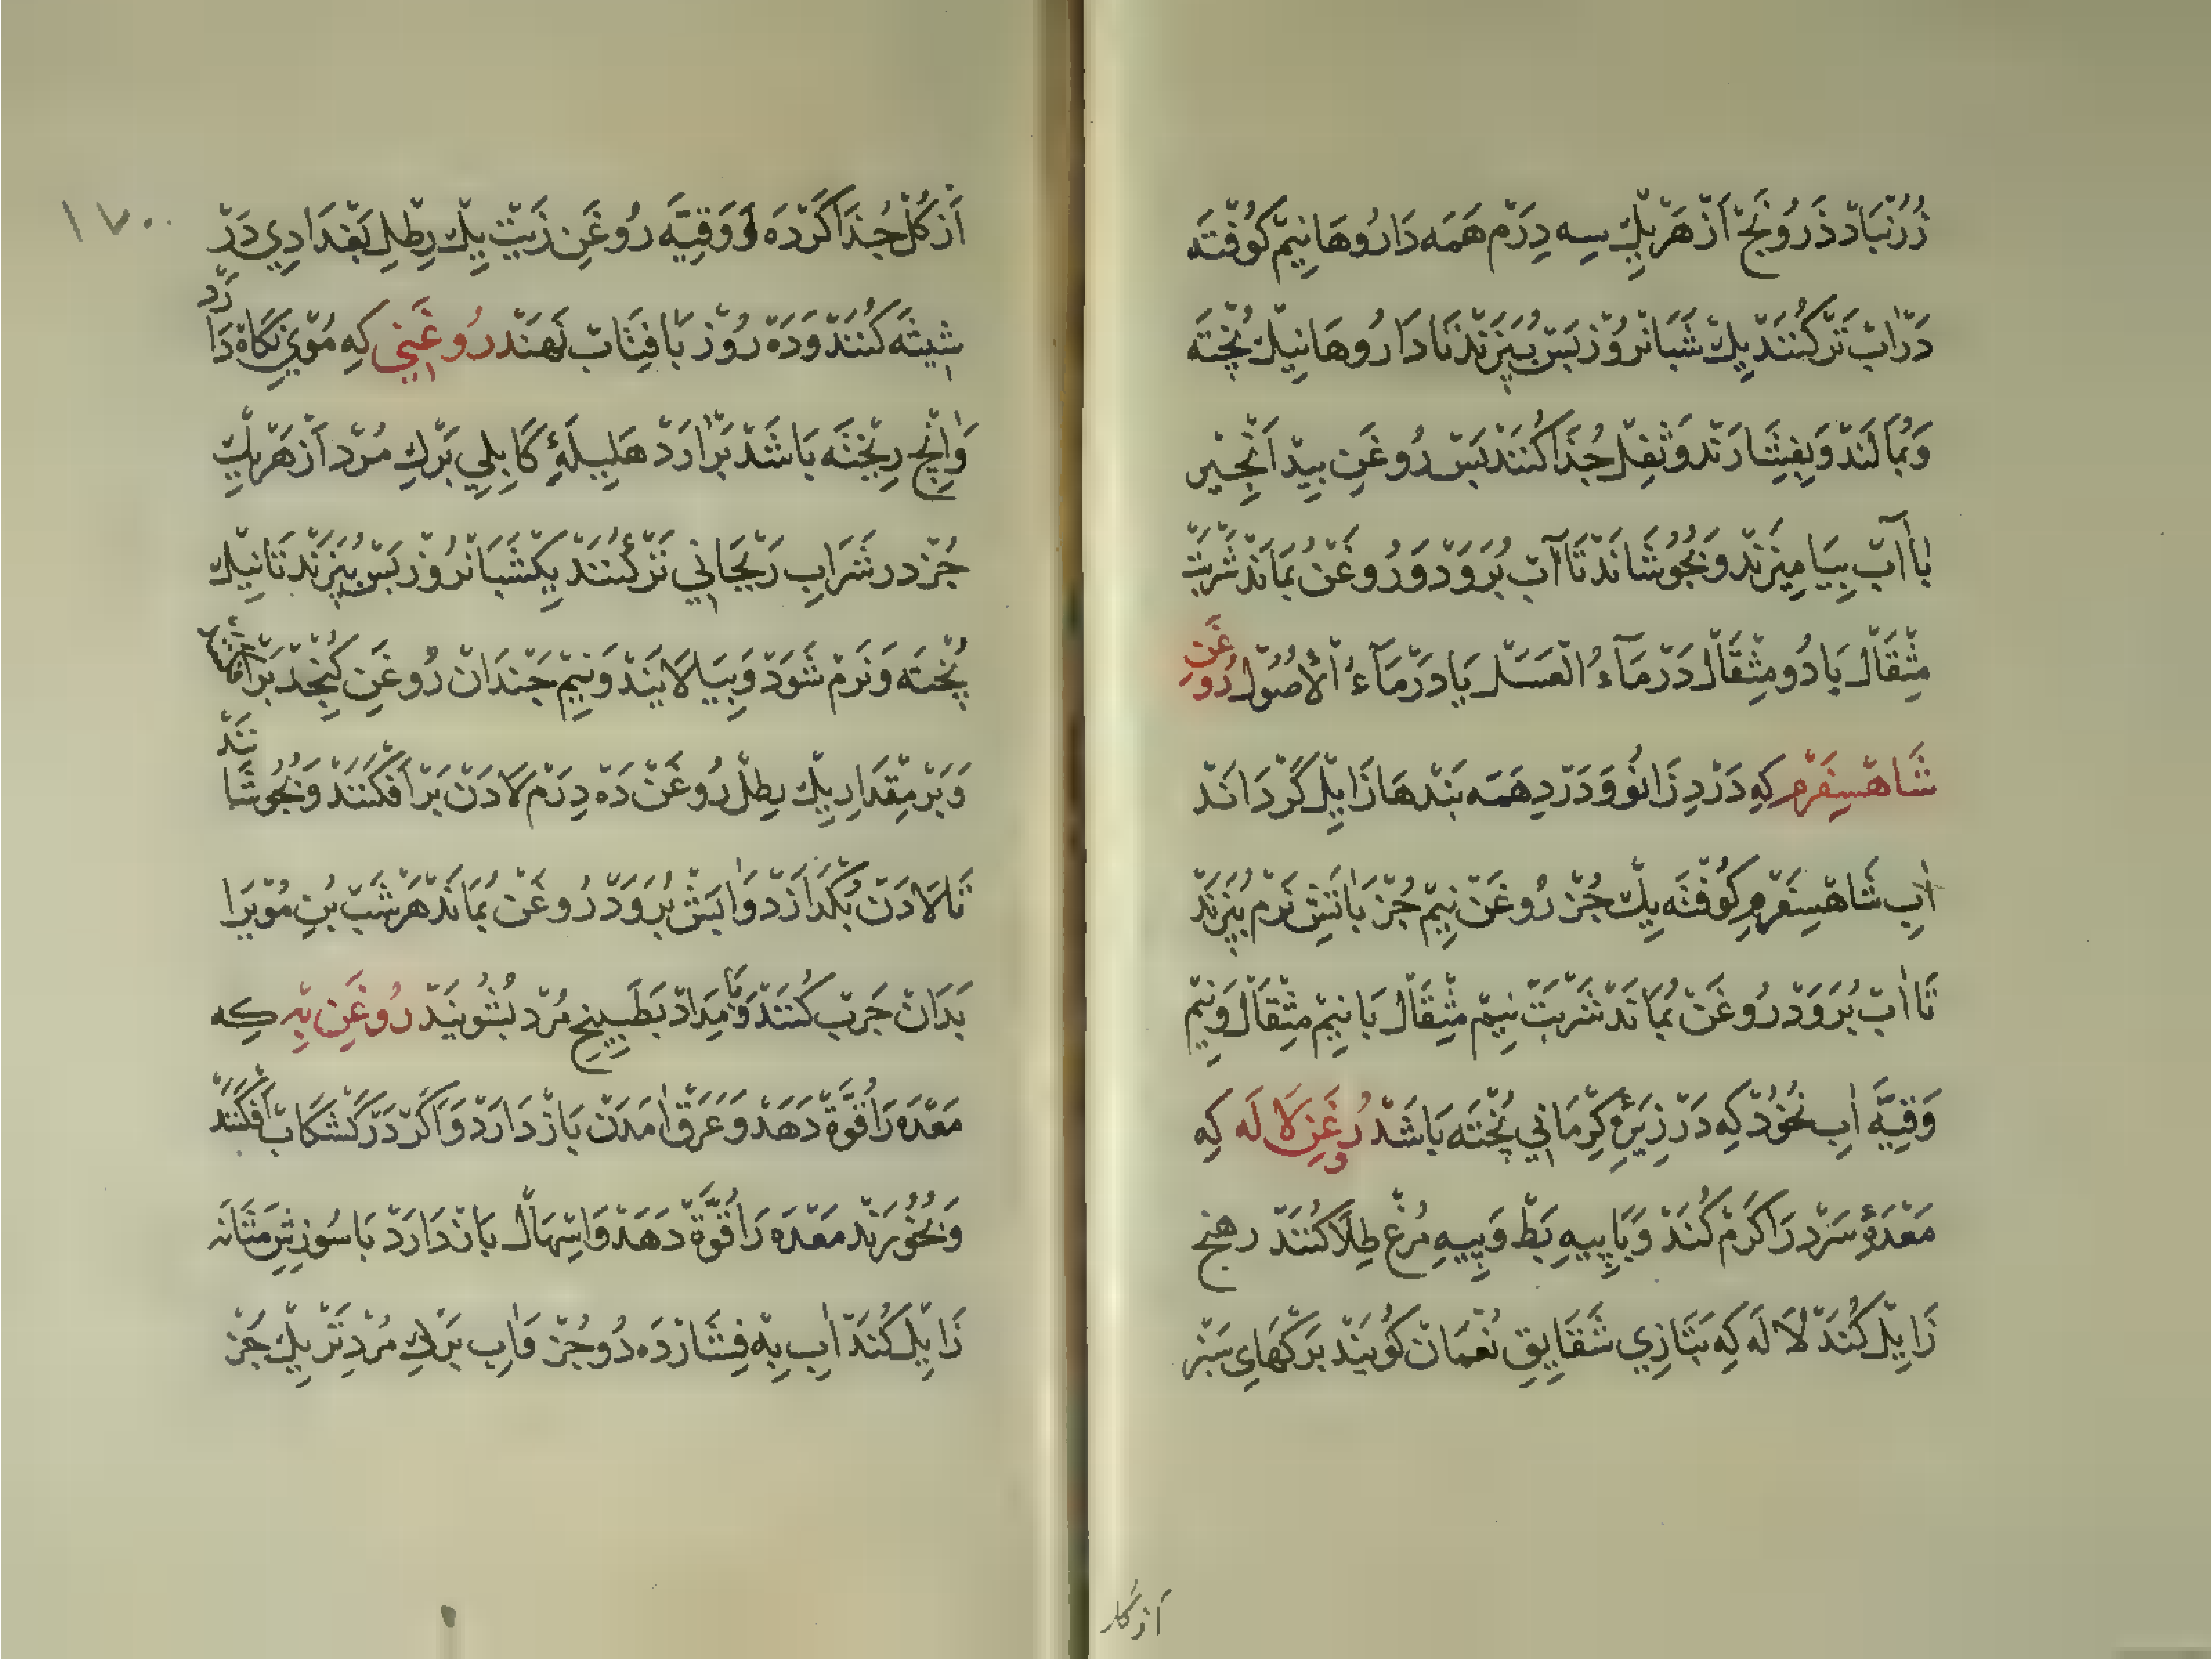 زُرُنْبَادْ ذَرُونَجْ اَزْ هَرْيِكْ سِه دِرَمْ هَمَه دَارُوهَا نِيمْ كُوفْتَه
دَرْ اٰبْ تَرْ كُنَنَدْ يِكْ شَبَانْرُوزْ بَسْ بِپَزَنْدْ تَا دَارُوهَا نِيكْ پُخْتَه
وَبُمَالَنْدْ وَبِفِشَارَنْدْ وَثِفِلْ جُذَا كُنَنْدْ بَسْ رُوغَنِ بِيدْ اَنْجِيرِ
بَا اٰبْ بِيَامِيزَنْدْ وَبُجُوشَانَدْ تَا آبْ بُرَوَدْ وَرُوغَنْ بُمَانَدْ شَرْبَتْ
مِثْقَالْ يَا دُو مِثْقَالْ دَرْ مَآءُ الْعَسَلْ يَا دَرْ مَآءُ الْأُصُولْ رُوغَنِ
شَاهْسِفَرْمْ كِه دَرْدِ زَانُو وَدَرْدِ هَمَه بَنْدْهَا زَايِلْ كَرْدَانَدْ
اٰبِ شَاهْسِفَرْمِ كُوفْتَه يِكْ جُزْ رُوغَنْ نِيمْ جُزْ بَا اٰتَشِ نَرْمْ بِپَزَنْدْ
تَا اٰبْ بُرَوَدْ رُوغَنْ بُمَانَدْ شَرْبَتْ نِيمْ مِثْقَالْ يَا نِيمْ مِثْقَالْ وَنِيمْ
وَقِيَّه اٰبِ نُخُودْ كِه دَرْ زِيرَهٔ كِرْمَانِي پُخْتَه بَاشَدْ رُوغَنِ لَالَه كِه
مَعْدَهٔ سَرْدْ رَا كَرْمْ كُنَدْ وَبَا پِيهِ بَطْ وَپِيهِ مُرْغْ طِلَا كُنَنَدْ رهنج
زَايِلْ كُنَدْ لَالَه كِه بَتَازِي شَقَايِقِ نُعْمَانْ كُويَنْدْ بَرْكَهَايِ سَبْز
اَزْ كُلْ جُذَا كَرْدَه دَوْ وَقِيَّه رُوغَنِ زَيْتْ يِكْ رِطْلِ بَغْدَادِي دَرْ
شِيشَه كُنَنَدْ وَدَهْ رُوزْ بَافِتَابْ نَهَنْدْ رُوغَنِي كِه مُويْ نِكَاهْ دَارَدْ
وَاٰنْچْ رِيخْتَه بَاشَدْ بَرْ اٰرَدْ هَلِيلَهٔ كَابِلِي بَرْكِ مُرْدْ اَزْ هَرْيِكْ
جُزْ در شَرَابِ رَيْحَانِي تَرْ كُنَنَدْ يِكْشَبَانْرُوزْ بَسْ بِپَزَنْدْ تَا نِيكْ
پُخْتَه وَنَرْمْ شَوَدْ وَبِيَالَايَنْدْ وَنِيمْ چَنْدَانْ رُوغَنِ كُنْجِدْ بَرْ
وَبَرْ مِقْدَارِ يِكْ رِطْلْ رُوغَنْ دَهْ دِرَمْ لَادَنْ بَرْ اَفْكَنَنَدْ وَبُجُوشَانَنْدْ
تَا لَادَنْ بُكْدَازَدْ وَاٰبَشْ بُرَوَدْ رُوغَنْ بُمَانَدْ هَرْ شَبْ بُنِ مُوْيْرَا
بَدَانْ چَرْبْ كُنَنَدْ وَبَامِدَادْ بَطَبِيخِ مُرْدْ بُشُويَنَدْ رُوغَنِ بِهْ كِه
مَعْدَه رَا قُوَّةْ دَهَدْ وَعَرَقْ اٰمَدَنْ بَازْ دَارَدْ وَاَكَرْ دَرْ كَشْكَابْ اَفْكَنَنَدْ
وَبُخُورَنْدْ مَعْدَه رَا قُوَّةْ دَهَدْ وَاِسْهَالْ بَازْ دَارَدْ بَا سُوزِشِ مَثَانَه
زَايِلْ كُنَدْ اٰبِ بِهْ فِشَارْدَه دُو جُزْ وَاٰبِ بَرْكِ مُرْدِ تَرْ يِكْ جُزْ
ازكل
١٧٠